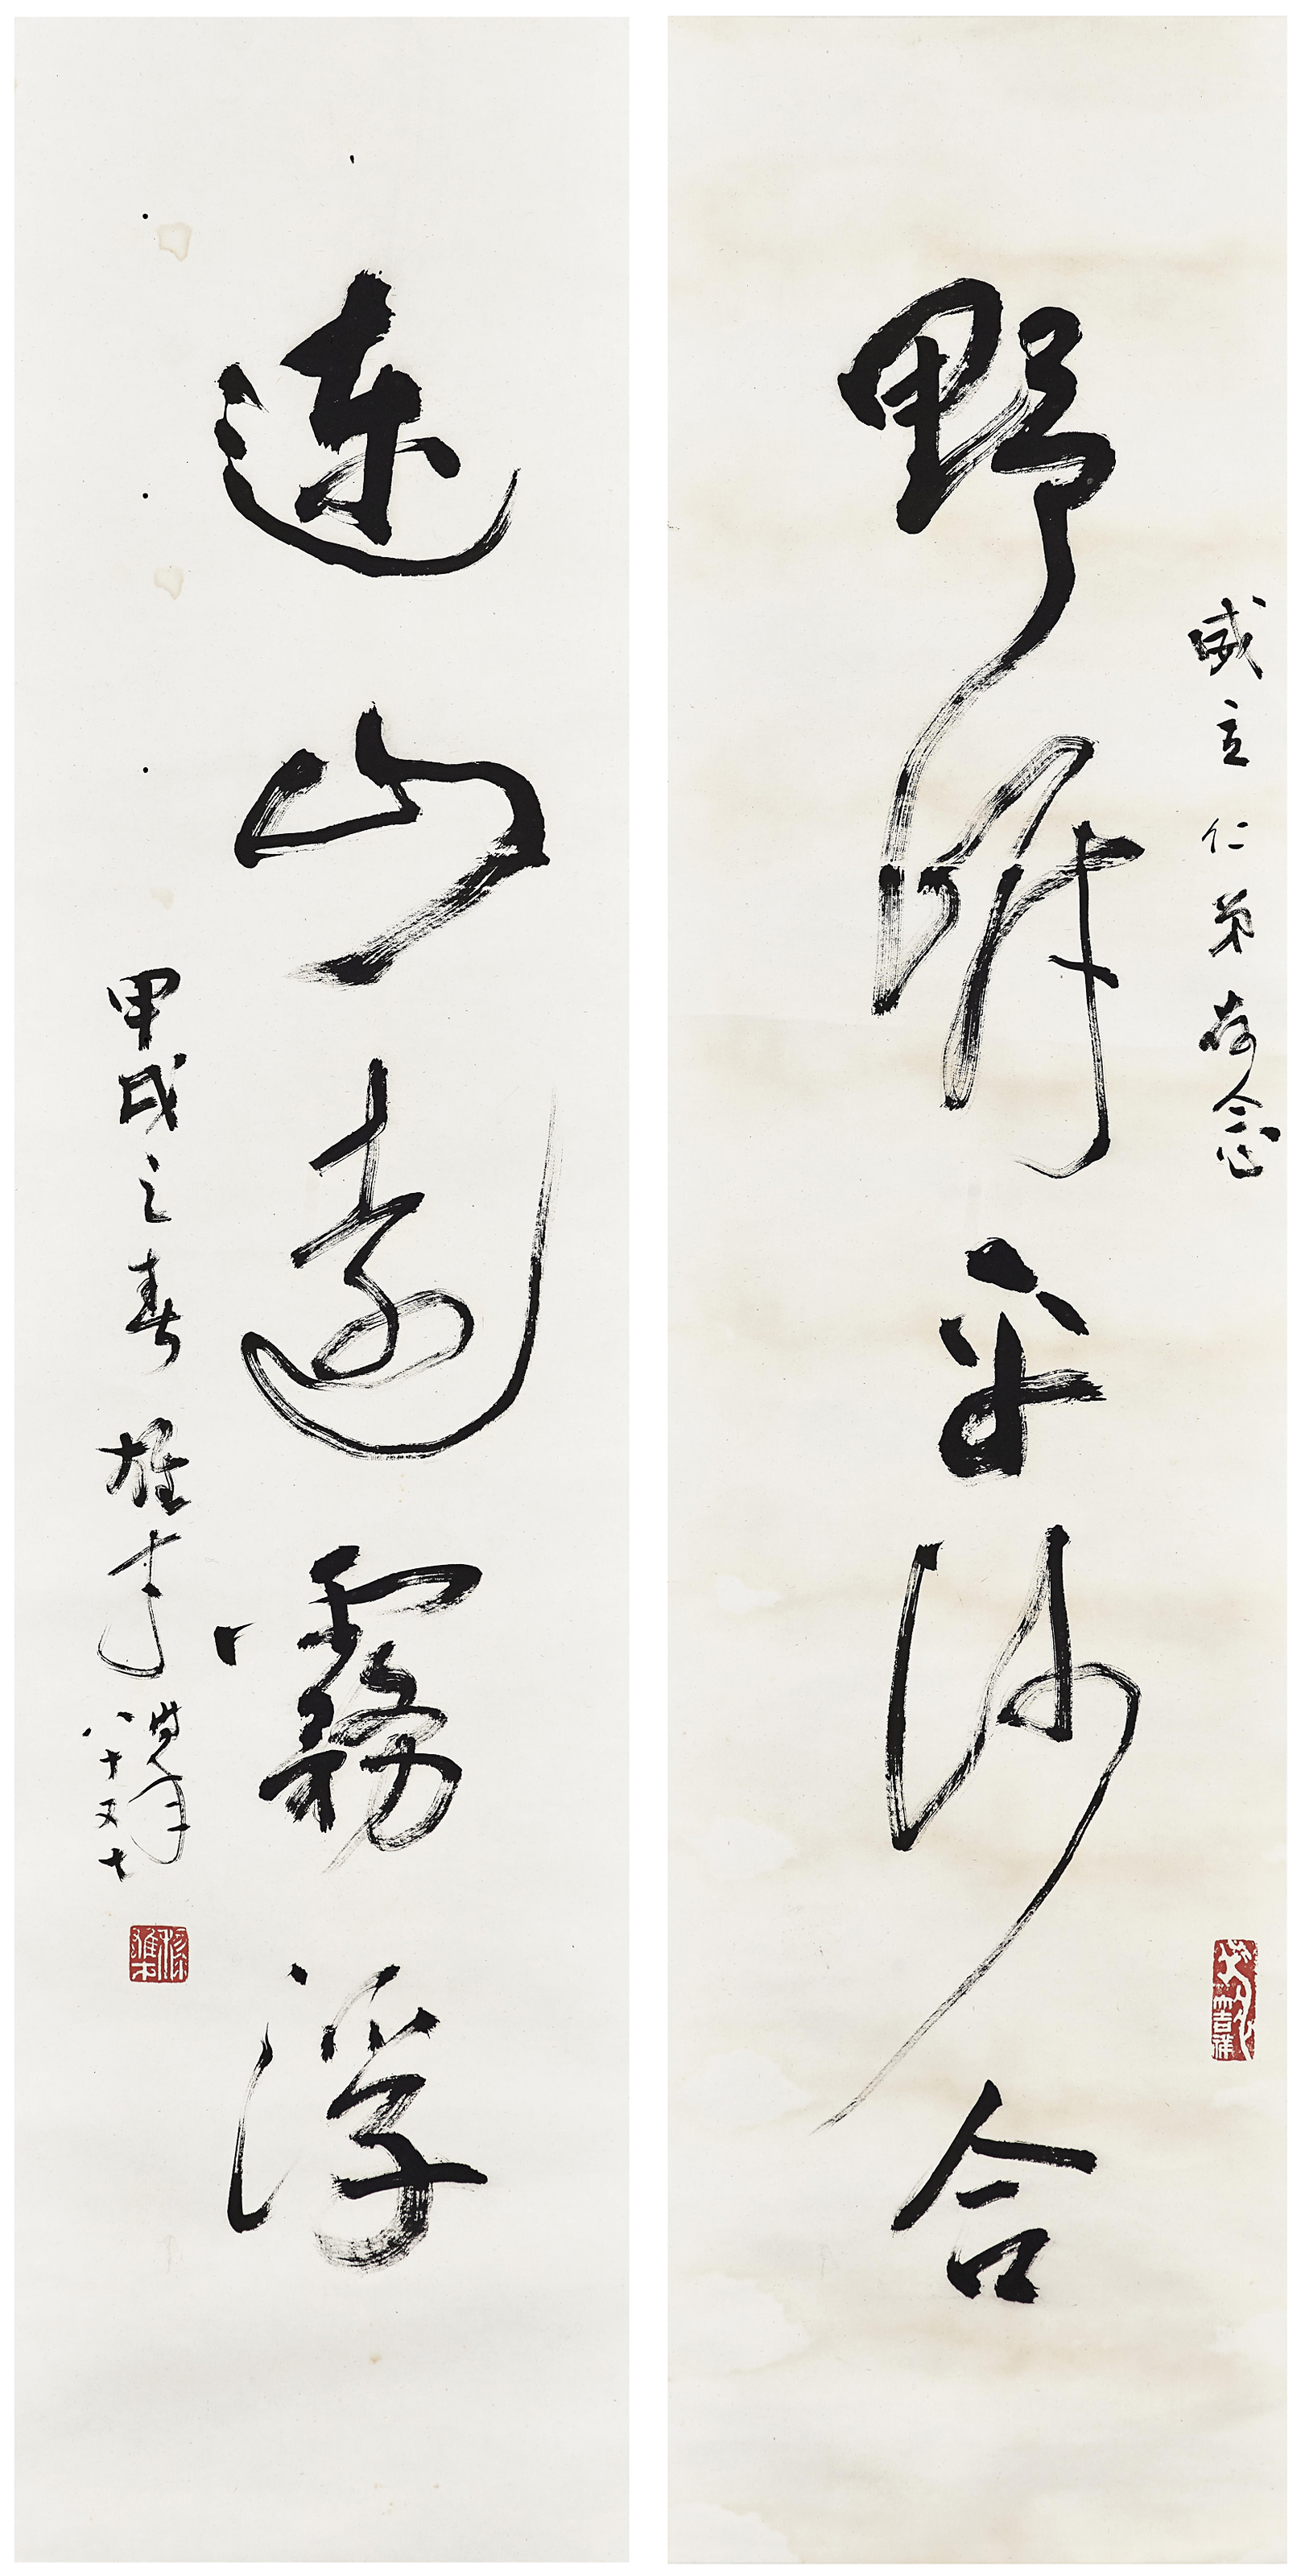 威立仁弟存念
野岸平沙合
連山遠霧浮
甲戌之春 雄才 時年
八十又七